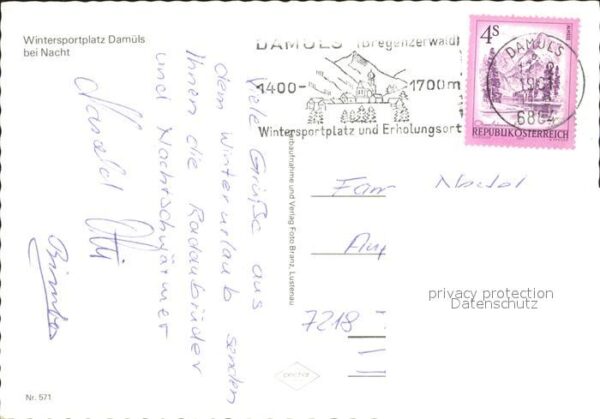 Wintersportplatz Damüls
bei Nacht
DAMÜLS (Bregenzerwald)
1400- 1700m
Wintersportplatz und Erholungsort
4S
REPUBLIK ÖSTERREICH
DAMÜLS
6884
Viele Grüße aus
dem Winterurlaub senden
Ihnen die Radaubrüder
und Nachtschwärmer
Harald
Fam
7218
Farbaufnahme und Verlag Foto Branz, Lustenau
privacy protection
Datenschutz
Nr. 571